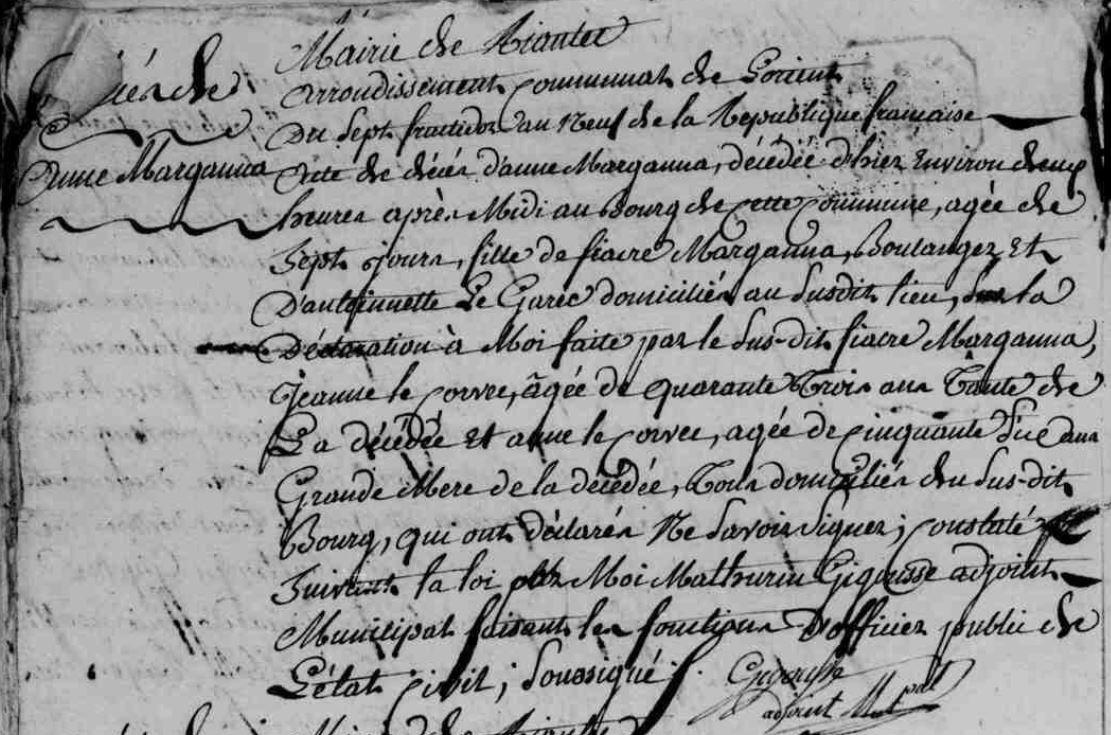 Mairie de Riantec
Décès de
arrondissement Communal de Lorient
Du Sept fructidor an Neuf de la Republique francaise
Anne Marganna
Acte de décès d'anne Marganna, décédée d'hier Environ
heures après Midi au Bourg de cette Commune, agée de
Sept jours, fille de fiacre Marganna, Boulanger Et
D'antoinnette Le Garec domiciliés au Susdit lieu, Sur la
Déclaration à Moi faite par le Sus-dit fiacre Marganna,
Jeanne le Corvec, agée de quarante Trois ans Tante de
La décédée Et anne le Corvec, agée de Cinquante Six ans
Grande Mere de la décédée, Tous domiciliés du Sus-dit
Bourg, qui ont déclarés Ne Savoir Signer; Constaté
Suivant la loi par Moi Mathurin Gigousse adjoint
Municipal faisant les fonctions D'officier public de
L'état Civil; Soussigné.
Gigousse
adjoint M.pal
Mairie de Riantec